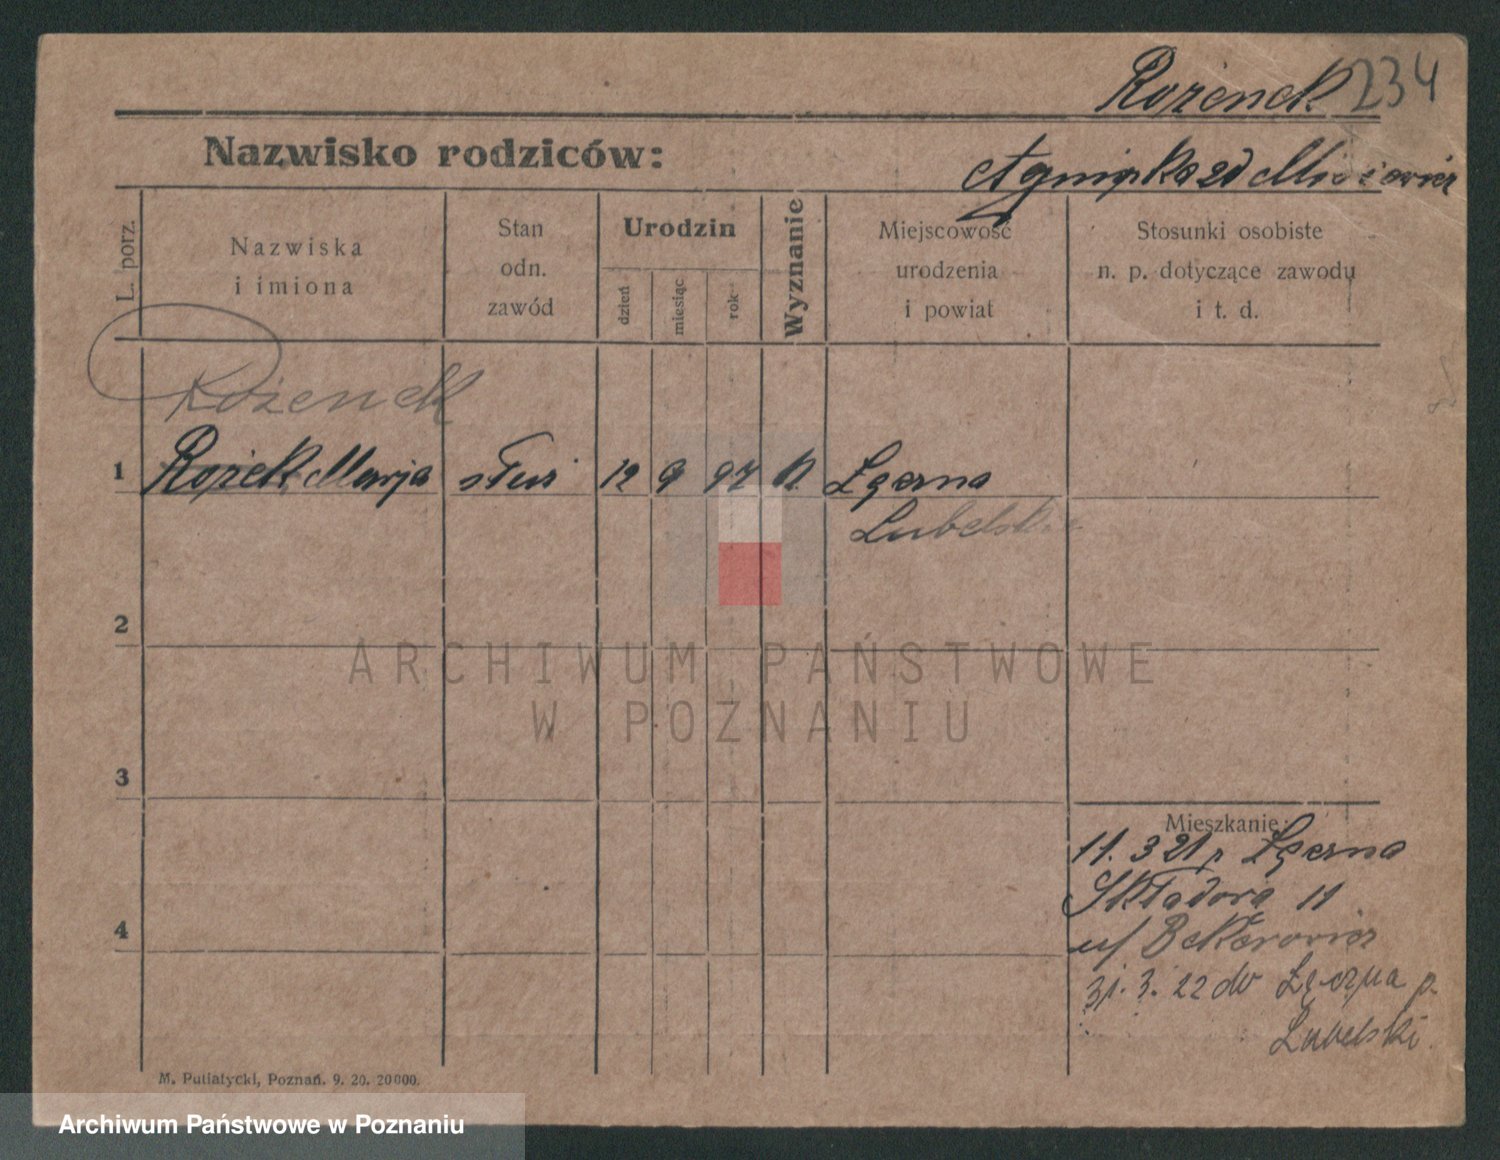 Rożenek 234
Nazwisko rodziców:
Agnieszka zd
L. porz.
Nazwiska
i imiona
Stan
odn.
zawód
Urodzin
dzień
miesiąc
rok
Wyznanie
Miejscowość
urodzenia
i powiat
Stosunki osobiste
n. p. dotyczące zawodu
i t. d.
Rożenek
1 Rożek Marja służ 12 9 97 k. Łęczna
Lubelskie
2
ARCHIWUM PAŃSTWOWE
W POZNANIU
3
Mieszkanie:
11. 3 21 z Łęczna
Składowa 11
4
31. 3. 22 do Łęczna p.
Lubelski.
M. Putiatycki, Poznań. 9. 20. 20000.
Archiwum Państwowe w Poznaniu